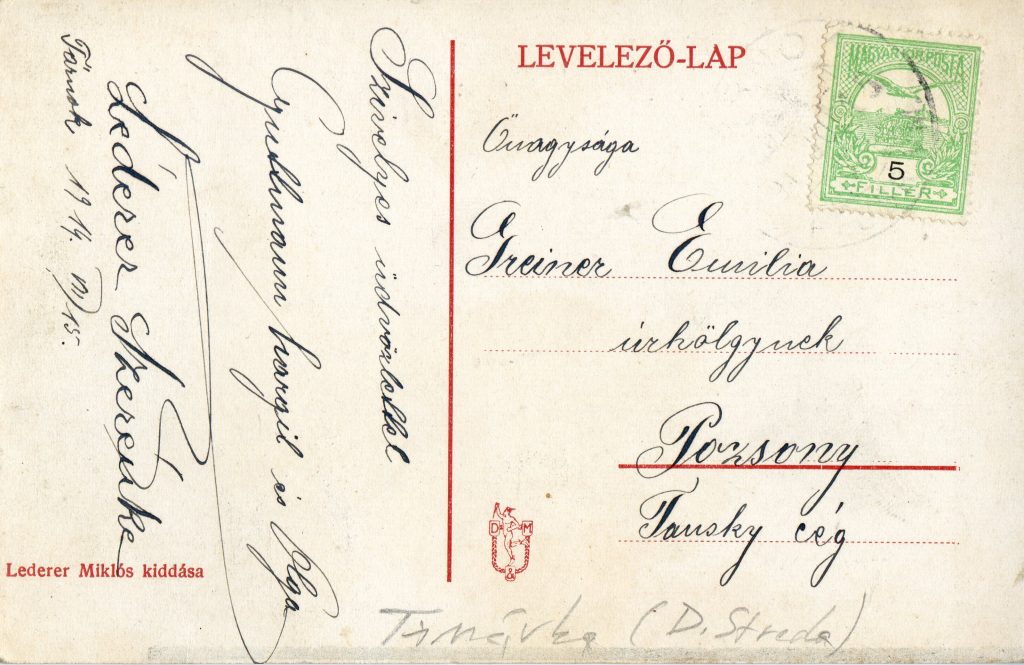 LEVELEZŐ-LAP
MAGYAR KIR. POSTA
5
FILLÉR
Őnagysága
Greiner Emilia
úrhölgynek
Pozsony
Tausky cég
D M
Szivélyes üdvözlettel
Gutlmann Margit és Olga
Léderer Szerénke
Tárnok 1914. VI/15.
Lederer Miklós kiddása
Trnávka (D. Streda)